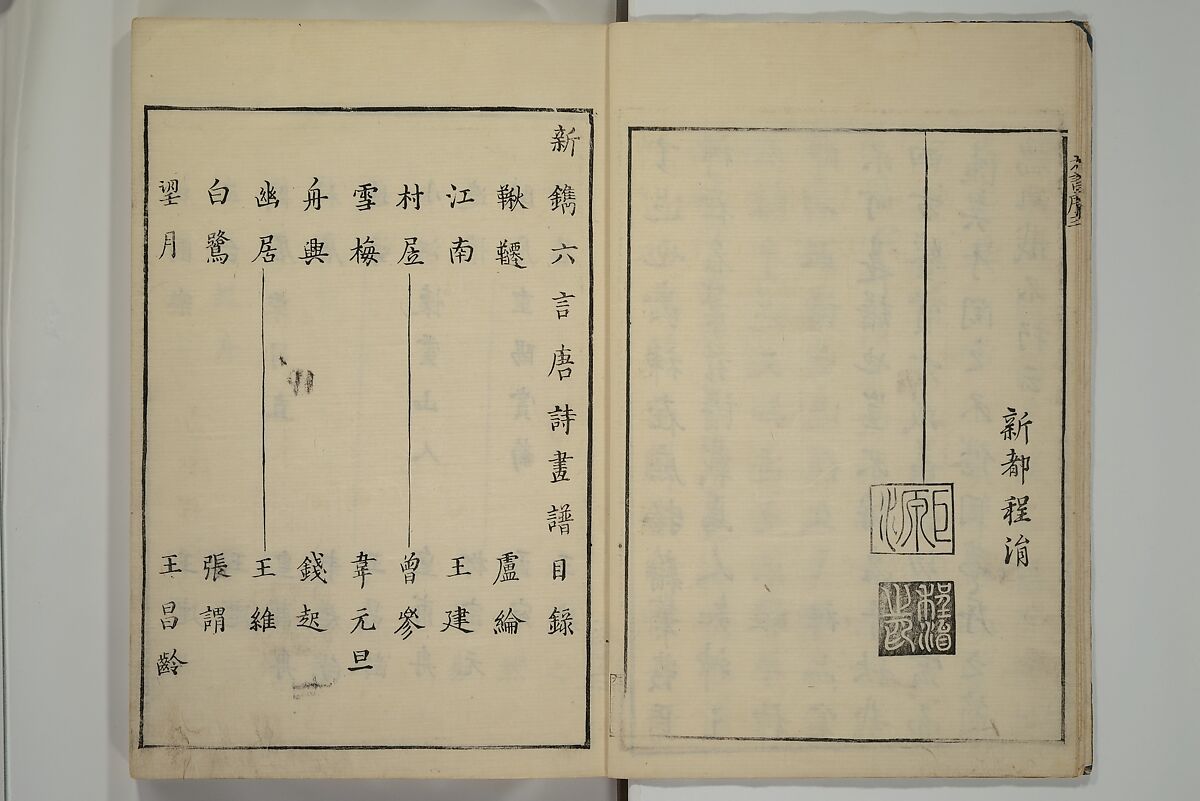 新都程涓
新鐫六言唐詩畫譜目錄
鞦韆 盧綸
江南 王建
村居 曾參
雪梅 韋元旦
舟興 錢起
幽居 王維
白鷺 張謂
望月 王昌齡